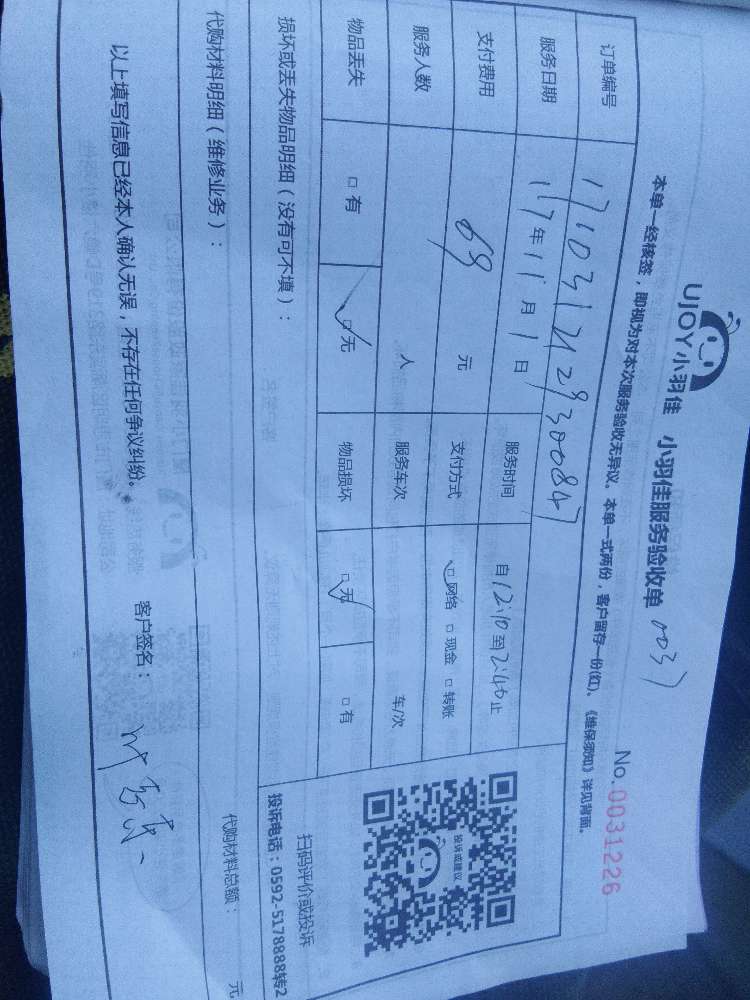 UJOY小羽佳 小羽佳服务验收单 0037
No. 0031226
本单一经核签，即视为对本次服务验收无异议。本单一式两份，客户留存一份(红)。《维保须知》详见背面。
订单编号 1710312129300847
服务日期 17年11月1日 服务时间 自12:10至2:40止
支付费用 69 元 支付方式 □网络 □现金 □转账
服务人数 人 服务车次 车/次
物品丢失 □有 □无 物品损坏 □无 □有
损坏或丢失物品明细（没有可不填）：
投诉或建议
扫码评价或投诉
投诉电话：0592-5178888转2
代购材料明细（维修业务）：
代购材料总额： 元
以上填写信息已经本人确认无误，不存在任何争议纠纷。 客户签名：